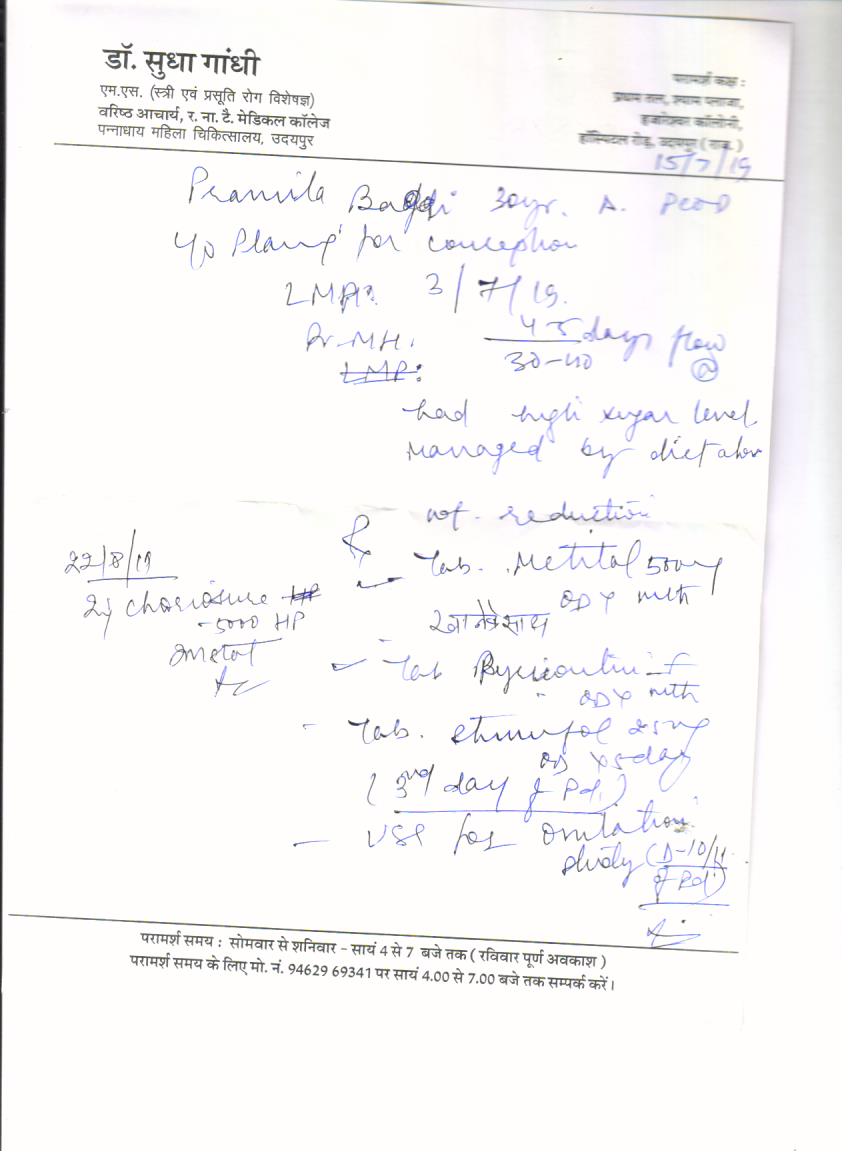 डॉ. सुधा गांधी
एम.एस. (स्त्री एवं प्रसूति रोग विशेषज्ञ)
वरिष्ठ आचार्य, र. ना. टै. मेडिकल कॉलेज
पन्नाधाय महिला चिकित्सालय, उदयपुर
परामर्श कक्ष :
प्रथम तल, श्याम प्लाजा,
हजारेश्वर कॉलोनी,
हॉस्पिटल रोड़, उदयपुर ( राज. )
15/7/19
Pramila 30yr. A. PCOD
for conception
LMP: 3/7/19.
Pr. MH. 4-5 days flow
30-40
LMP:
had high sugar level
managed by diet
wt. reduction
Rx
Tab. 500mg
OD X mth
खाने के साथ
22/8/19
5000 HP
Tab
OD X mth
Tab. 25mg
OD X 5 days
( 3rd day of Pd. )
USG for Ovulation
study (D-10/11
of Pd.)
परामर्श समय : सोमवार से शनिवार - सायं 4 से 7 बजे तक ( रविवार पूर्ण अवकाश )
परामर्श समय के लिए मो. नं. 94629 69341 पर सायं 4.00 से 7.00 बजे तक सम्पर्क करें।